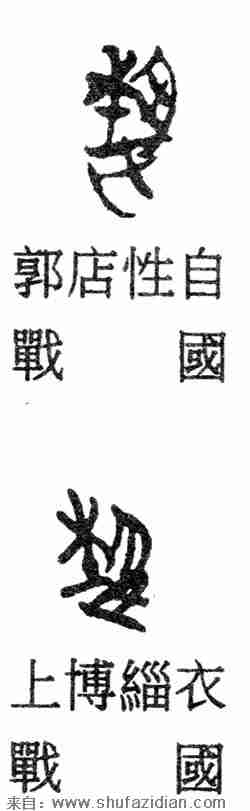 郭店性自
戰國
上博緇衣
戰國
来自：www.shufazidian.com